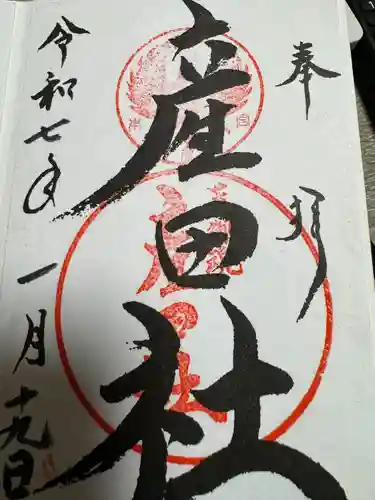 奉拝
産田社
令和七年一月十九日